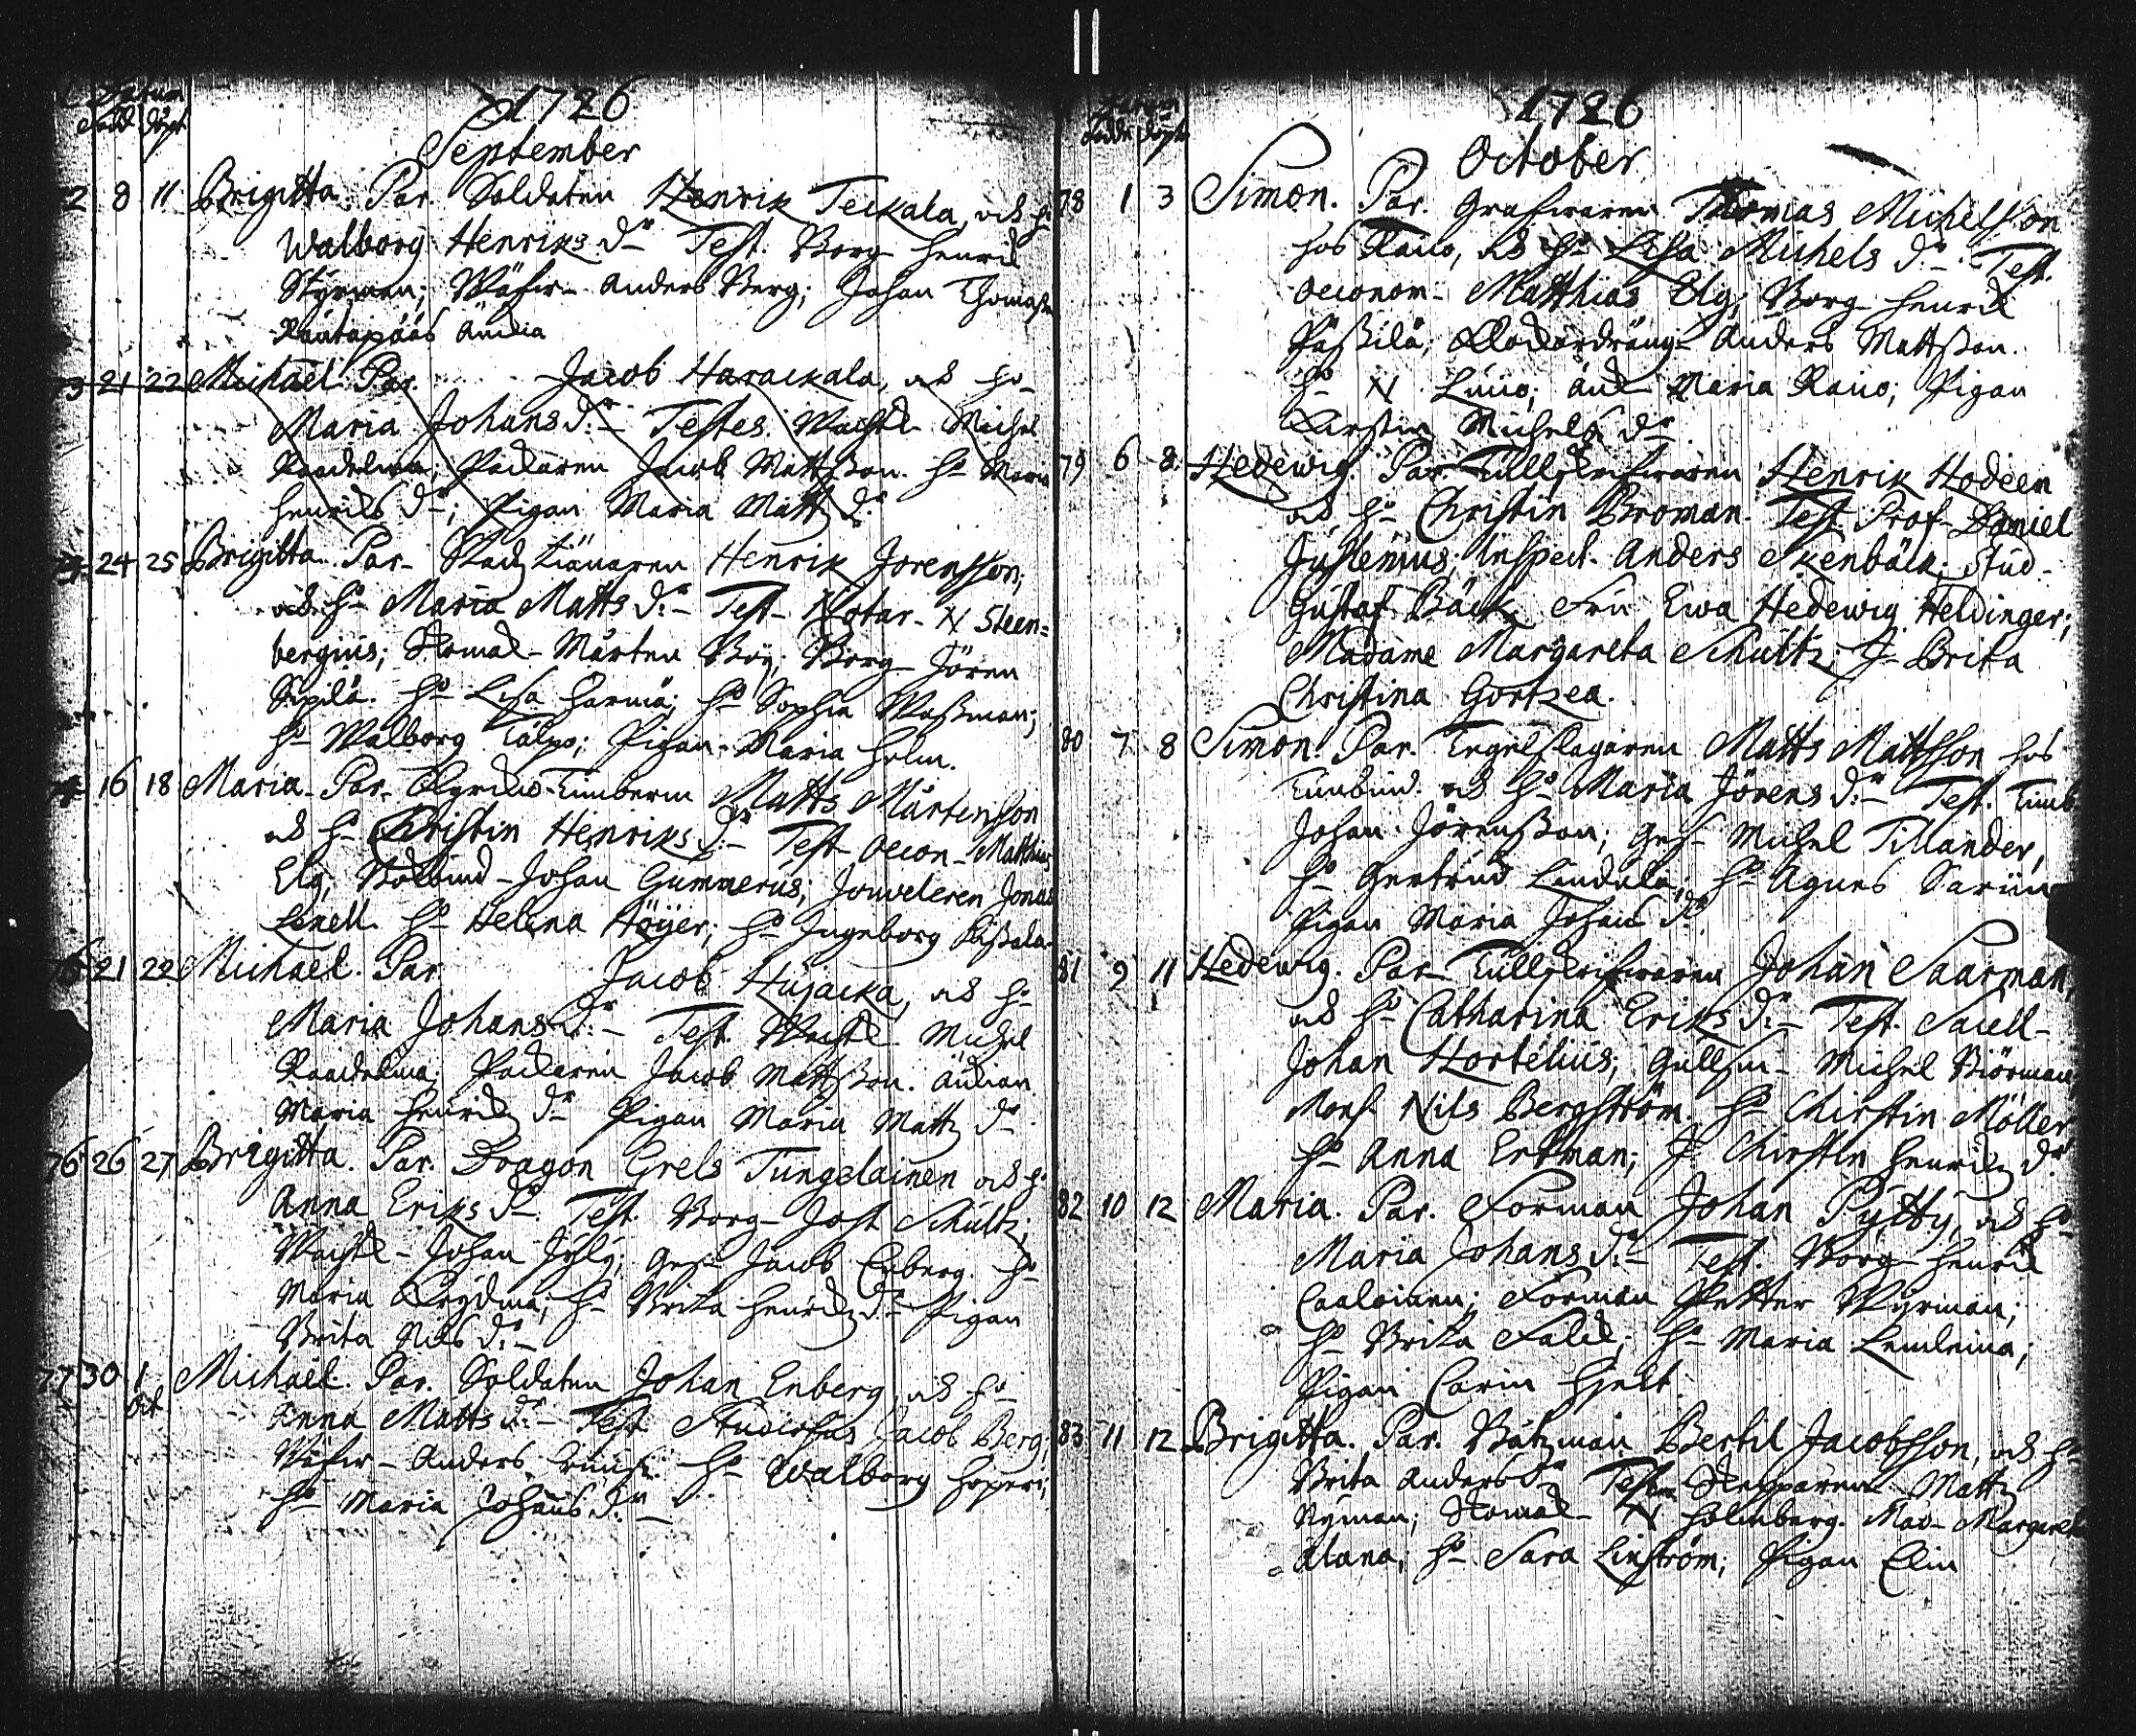 1726
September
2 8 11 Brigitta. Par. Soldaten Henrik Teckala, och h:
Walborg Henriks d:r Test. Borg Henric
Styrman; Wäfw- Anders Berg; Johan Thomass
Rautapääs
3 21 22 Michaël. Par. Jacob Harackala, och h:o
Maria Johans d:r Testes. Wachtk- Michel
Packaren Jacob Mattsson. H:o Maria
Henriks d:r; Pigan Maria Matts d:r
24 25 Brigitta. Par. Stadz tiänaren Henrik Jorensson,
och h:o Maria Matts d:r Test. Notar. N Steen=
bergius; Skomak- Mårten Böy; Borg Jören
Sipilä. H:o Lisa Harmä; H:o Sophia Wassman;
H:o Walborg Talpo; Pigan Maria Holm.
16 18 Maria. Par. Timberm Matts Mårtensson
och h:o Christin Henriks d:r Test Oecon- Matthias
Elg; Bokbind- Johan Gummerus; Jouveleren Jonas
Lenell. H:o Helena Höyer; H:o Ingeborg
21 22 Michaël. Par. Jacob Hujacka, och h:o
Maria Johans d:r Test. Wachtk Michel
Packaren Jacob Mattsson.
Maria Henricz d:r Pigan Maria Mattz d:r
76 26 27 Brigitta. Par. Dragon Grels Tungelainen och h:
Anna Eriks d:r Test. Borg- Jost Schultz;
Wachtk- Johan Jyly; Ges- Jacob Enberg. H:o
Maria H:o Brita Henricz d:r Pigan
Brita Nils d:r
77 30 1 Michaël. Par. Soldaten Johan Enberg, och h:o
Oct
Anna Matts d:r Test. Studiosus Jacob Berg;
Wäfw- Anders H:o Walborg
H:o Maria Johans d:r
1726
October
78 1 3 Simon. Par. Grafwaren Thomas Michelsson
hos Rauo, och h:o Lisa Michels d:r Test.
Oeconom- Matthias Elg; Borg- Henric
Pässilä; Anders Mattsson.
H:o N Luuo; Maria Rauo; Pigan
Kirstin Michels d:r
79 6 8 Hedewig. Par. Tullskrifwaren Henrik Hodeen
och h:o Christin Broman. Test. Prof. Daniel
Juslenius; Inspect. Anders Ekenbäck; Stud-
Gustaf Bäck, Fru Ewa Hedewig Heldinger;
Madame Margareta Schultz; J- Brita
Christina Gortzea.
80 7 8 Simon. Par. Tegelslagaren Matts Mattsson hos
och h:o Maria Jörens d:r Test. Timb
Johan Jörensson; Ges- Michel Tillander,
H:o Gertrud Lindula; H:o Agnes
Pigan Maria Johans d:r
81 9 11 Hedewig. Par. Tullskrifwaren Johan Saarman,
och h:o Catharina Eriks d:r Test. Sacell-
Johan Hortelius; Gullsm- Michel Biörman;
Mons. Nils Bergström. H:o Chirstin Möller
H:o Anna Erkman; J- Chirstin Henricz d:r
82 10 12 Maria. Par. Forman Johan Pytty, och h:o
Maria Johans d:r Test. Borg- Henric
Caaloinen; Forman Petter Myrman;
H:o Brita Falck; H:o Maria
Pigan Carin Hjelt.
83 11 12 Brigitta. Par. Båtzman Bertil Jacobsson, och h:o
Brita Anders d:r Test. Skepparen Mattz
Nyman; Skomak- N Holmberg. Mad- Margareta
Alana; H:o Sara Linström; Pigan Elin